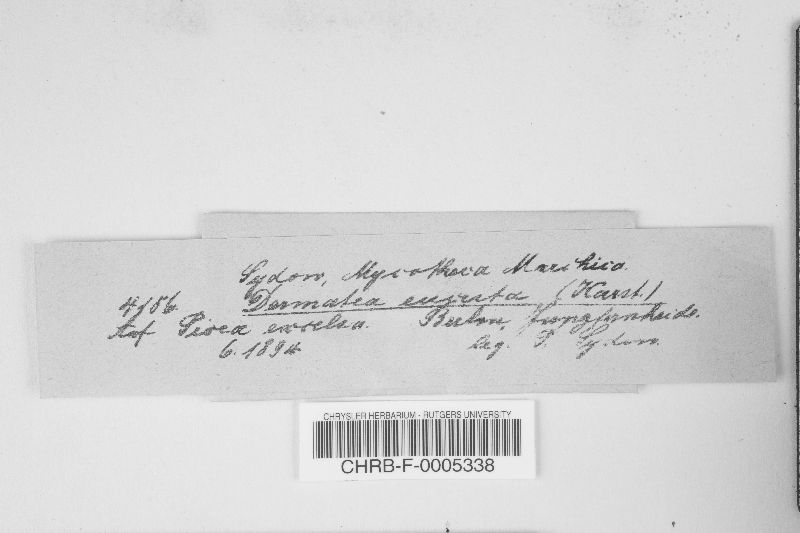 Sydow, Mycotheca Marchica.
4156. Dermatea eucrita (Karst.)
Auf Picea excelsa. Berlin, Jungfernheide.
6. 1894 leg. P. Sydow.
CHRYSLER HERBARIUM - RUTGERS UNIVERSITY
CHRB-F-0005338